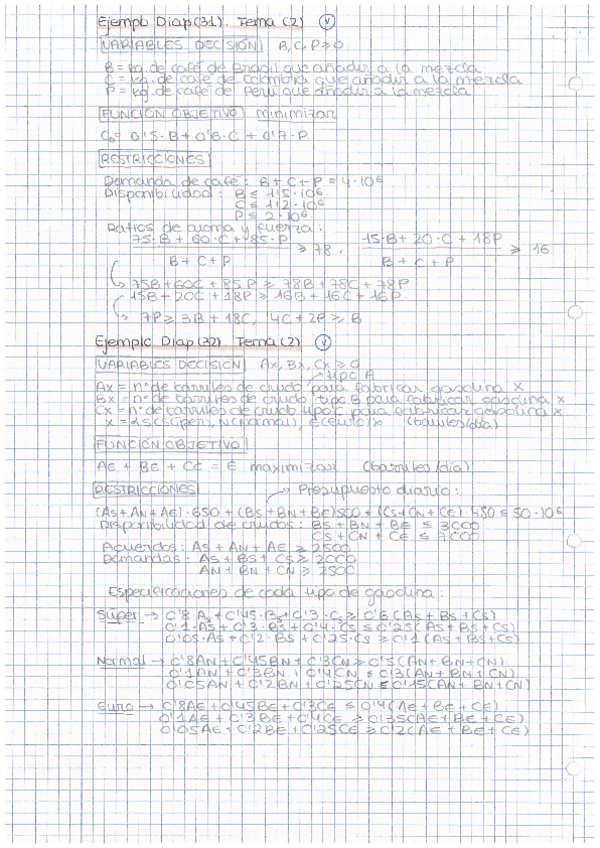 Ejemplo Diap(31). Tema (2) V
VARIABLES DECISIÓN B,C,P≥0
B = kg. de café de Brasil que añadir a la mezcla
C = kg. de café de Colombia que añadir a la mezcla
P = kg. de café de Perú que añadir a la mezcla
FUNCIÓN OBJETIVO minimizar
0'5·B+0'6·C+0'7·P
RESTRICCIONES
Demanda de café: B+C+P = 4·10⁶
Disponibilidad: B ≤ 1'5·10⁶
C ≤ 1'2·10⁶
P ≤ 2·10⁶
Ratios de aroma y fuerza:
75·B+60·C+85·P / B+C+P ≥ 78, 15·B+20·C+18P / B+C+P ≥ 16
75B+60C+85P ≥ 78B+78C+78P
15B+20C+18P ≥ 16B+16C+16P
7P ≥ 3B+18C, 4C+2P ≥ B
Ejemplo Diap(32). Tema (2) V
VARIABLES DECISIÓN Ax, Bx, Cx ≥ 0
tipo A
Ax = nº de barriles de crudo para fabricar gasolina x
Bx = nº de barriles de crudo tipo B para fabricar gasolina x
Cx = nº de barriles de crudo tipo C para fabricar gasolina x
x = S(súper), N(normal), E(euro) (barriles/día)
FUNCIÓN OBJETIVO
AE + BE + CE = E maximizar (barriles/día)
RESTRICCIONES Presupuesto diario:
(As+AN+AE)·650+(Bs+BN+BE)500+(Cs+CN+CE)·450 ≤ 50·10⁶
Disponibilidad de crudos: Bs+BN+BE ≤ 3000
Cs+CN+CE ≤ 7000
Acuerdos: As+AN+AE ≥ 2500
Demandas: As+Bs+Cs ≥ 2000
AN+BN+CN ≥ 2500
Especificaciones de cada tipo de gasolina:
Súper → 0'8·As+0'45·Bs+0'3·Cs ≥ 0'6(As+Bs+Cs)
0'1·As+0'3·Bs+0'4·Cs ≤ 0'25(As+Bs+Cs)
0'05·As+0'2·Bs+0'25·Cs ≥ 0'1(As+Bs+Cs)
Normal → 0'8AN+0'45BN+0'3CN ≥ 0'5(AN+BN+CN)
0'1AN+0'3BN+0'4CN ≤ 0'3(AN+BN+CN)
0'05AN+0'2BN+0'25CN ≤ 0'15(AN+BN+CN)
Euro → 0'8AE+0'45BE+0'3CE ≤ 0'4(AE+BE+CE)
0'1AE+0'3BE+0'4CE ≥ 0'35(AE+BE+CE)
0'05AE+0'2BE+0'25CE ≥ 0'2(AE+BE+CE)